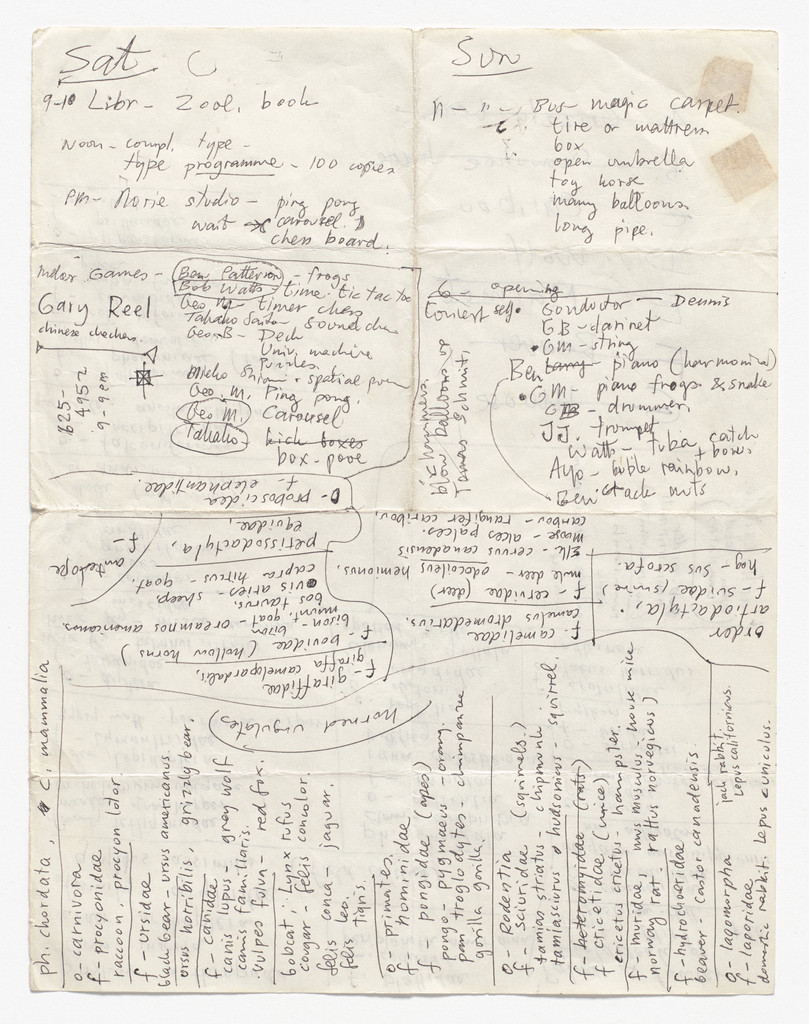 Sat. C
9-10 Libr- Zool. book
Noon- compl. type -
type programme - 100 copies
PM- studio - ping pong
wait carousel.
chess board.
Sun
11 - 11 - Bus- magic carpet.
tire or mattress
box
open umbrella
toy horse
many balloons.
long pipe.
Indor Games - Ben Patterson - frogs
Bob Watts - time: tic tac toe
Geo M - timer chess
Takako Saito - Sound chess
Geo-B - Deck
Univ. machine
Puzzles.
Shiomi - spatial poem
Geo. M. Ping pong.
Geo M. Carousel
Takako kick boxes
box - poge
Gary Reel
chinese checkers.
625-
4952
9-9 em
6- opening
Concert self. Conductor - Dennis
GB - clarinet
GM - string
Ben piano (harmonica)
GM - piano frogs & snake
GB - drummer
JJ. trumpet
Watts - tuba catch
+ bows.
Ayo - buble rainbow,
Ben stack nuts
blow balloons by
Tomas Schmit.
o- proboscidea
f- elephantidae.
perissodactyla,
equidae,
f-
antelope
order
artiodactyla,
f- suidae (swine)
hog - sus scrofa.
f- camelidae
camelus dromedarius.
f- cervidae (deer)
mule deer - odocoileus hemionus.
Elk - cervus canadensis
moose - alces palces.
caribou - rangifer caribou,
f- giraffidae
giraffa camelopardalis,
f- bovidae (hollow horns)
bison - bison
mount. goat - oreamnos americanus.
bos taurus.
ovis aries - sheep.
capra hircus - goat.
(horned ungulates)
ph. chordata, C. mammalia
o- carnivora
f- procyonidae
raccoon, procyon lotor
f- ursidae
black bear - ursus americanus
ursus horribilis, grizzly bear.
f- canidae
canis lupus - grey wolf
canis familiaris.
vulpes fulva - red fox.
bobcat: Lynx rufus
cougar - felis concolor.
felis onca - jaguar.
felis leo.
felis tigris.
o- primates.
f- hominidae
f- pongidae (apes)
pongo - pygmaeus - orang.
pan troglodytes - chimpanzee
gorilla gorilla.
o- Rodentia
f- sciuridae (squirrels.)
tamias striatus - chipmunk.
tamiasciurus hudsonicus - squirrel.
f- heteromyidae (rats)
f cricetidae (mice)
cricetus cricetus - hampster.
f- muridae, mus musculus - house mice
norway rat. rattus norvegicus)
f- hydrochoeridae
beaver - castor canadensis
o- lagomorpha
f- laporidae
domestic rabbit. Lepus cuniculus.
jack rabbit
Lepus californicus.